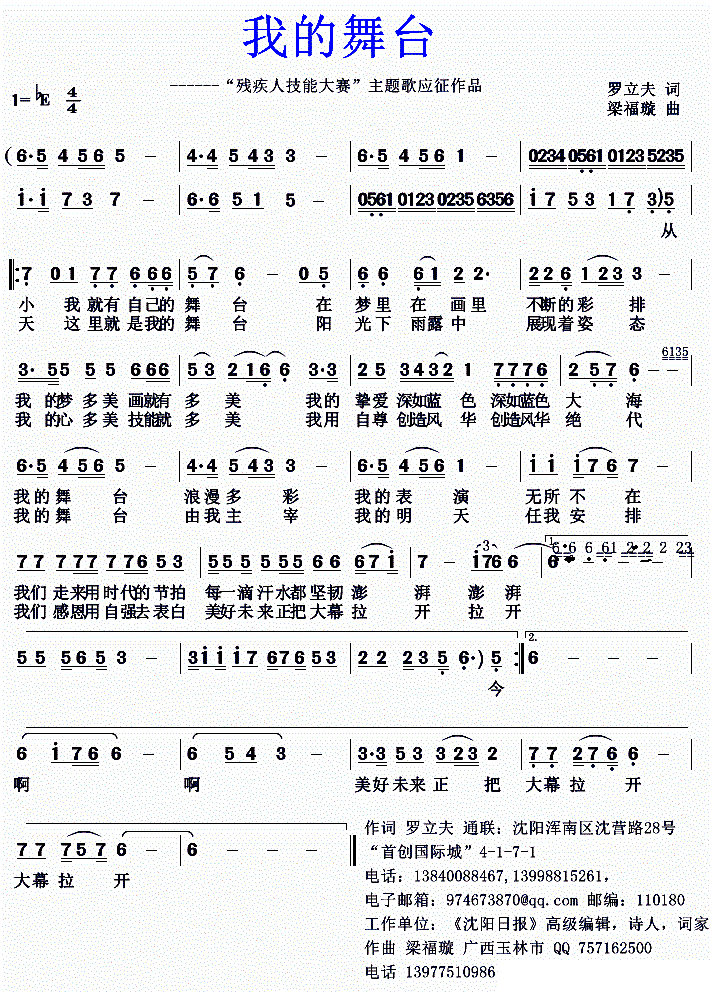 我的舞台
------“残疾人技能大赛”主题歌应征作品
1=♭E 4/4
罗立夫 词
梁福璇 曲
(6·5 456 5 - | 4·4 543 3 - | 6·5 456 1 - | 0234 0561 0123 5235
i·i 73 7 - | 6·6 51 5 - | 0561 0123 0235 6356 | i7 53 17 3)5
从
7 01 77 666 | 57 6 - 05 | 66 61 22· | 226 123 3 -
小 我 就有 自己的 舞 台 在 梦里 在 画里 不断的彩 排
天 这 里就 是我的 舞 台 阳 光下 雨露中 展现着姿 态
6135
3·55 55 666 | 53 216 6 3·3 | 25 3432 1 7776 | 257 6 - -
我 的梦 多美 画就有 多 美 我的 挚爱 深如蓝 色 深如蓝色 大 海
我 的心 多美 技能就 多 美 我用 自尊 创造风 华 创造风华 绝 代
6·5 456 5 - | 4·4 543 3 - | 6·5 456 1 - | i i i76 7 -
我的 舞 台 浪漫多 彩 我的表 演 无所 不 在
我的 舞 台 由我主 宰 我的明 天 任我 安 排
77 777 776 53 | 555 555 66 67i | 7 - i76 6 | 6
我们 走来用 时代的 节拍 每一滴 汗水都 坚韧 澎 湃 澎 湃
我们 感恩用 自强去 表白 美好未来正把大幕 拉 开 拉 开
55 565 3 - | 3iii7 6765 3 | 22 235 6·) 5 :| 2. 6 - - -
今
6 i76 6 - | 6 54 3 - | 3·3 53 323 2 | 77 276 6 -
啊 啊 美好未来 正 把 大幕 拉 开
77 757 6 - | 6 - - - ‖
大幕 拉 开
作词 罗立夫 通联：沈阳浑南区沈营路28号
“首创国际城”4-1-7-1
电话：13840088467,13998815261，
电子邮箱：974673870@qq.com 邮编：110180
工作单位：《沈阳日报》高级编辑，诗人，词家
作曲 梁福璇 广西玉林市 QQ 757162500
电话 13977510986